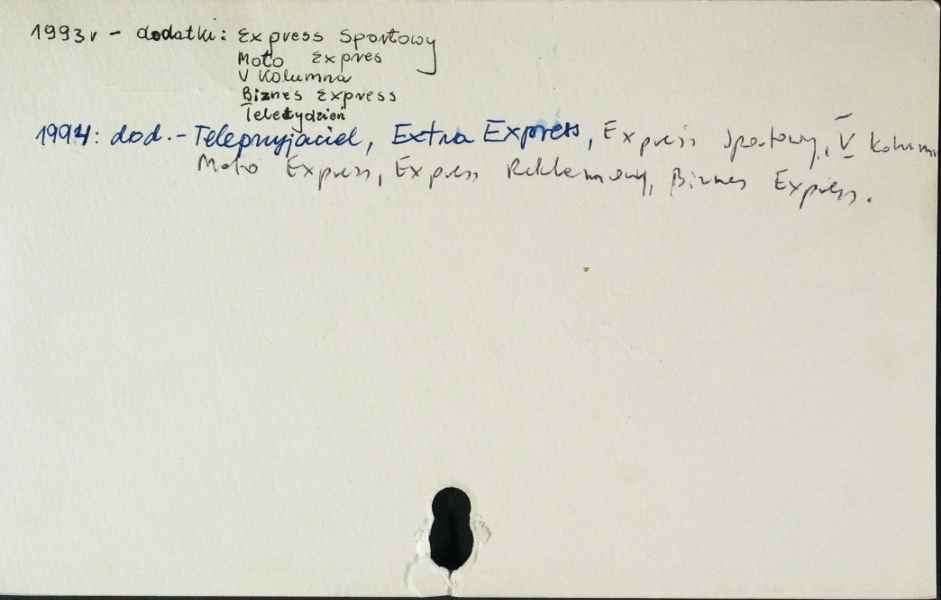 1993r - dodatki: Express Sportowy
Moto Expres
V Kolumna
Biznes Express
Teletydzień
1994: dod. - Teleprzyjaciel, Extra Express, Express Sportowy, V Kolumn
Moto Express, Express Reklamowy, Biznes Express.